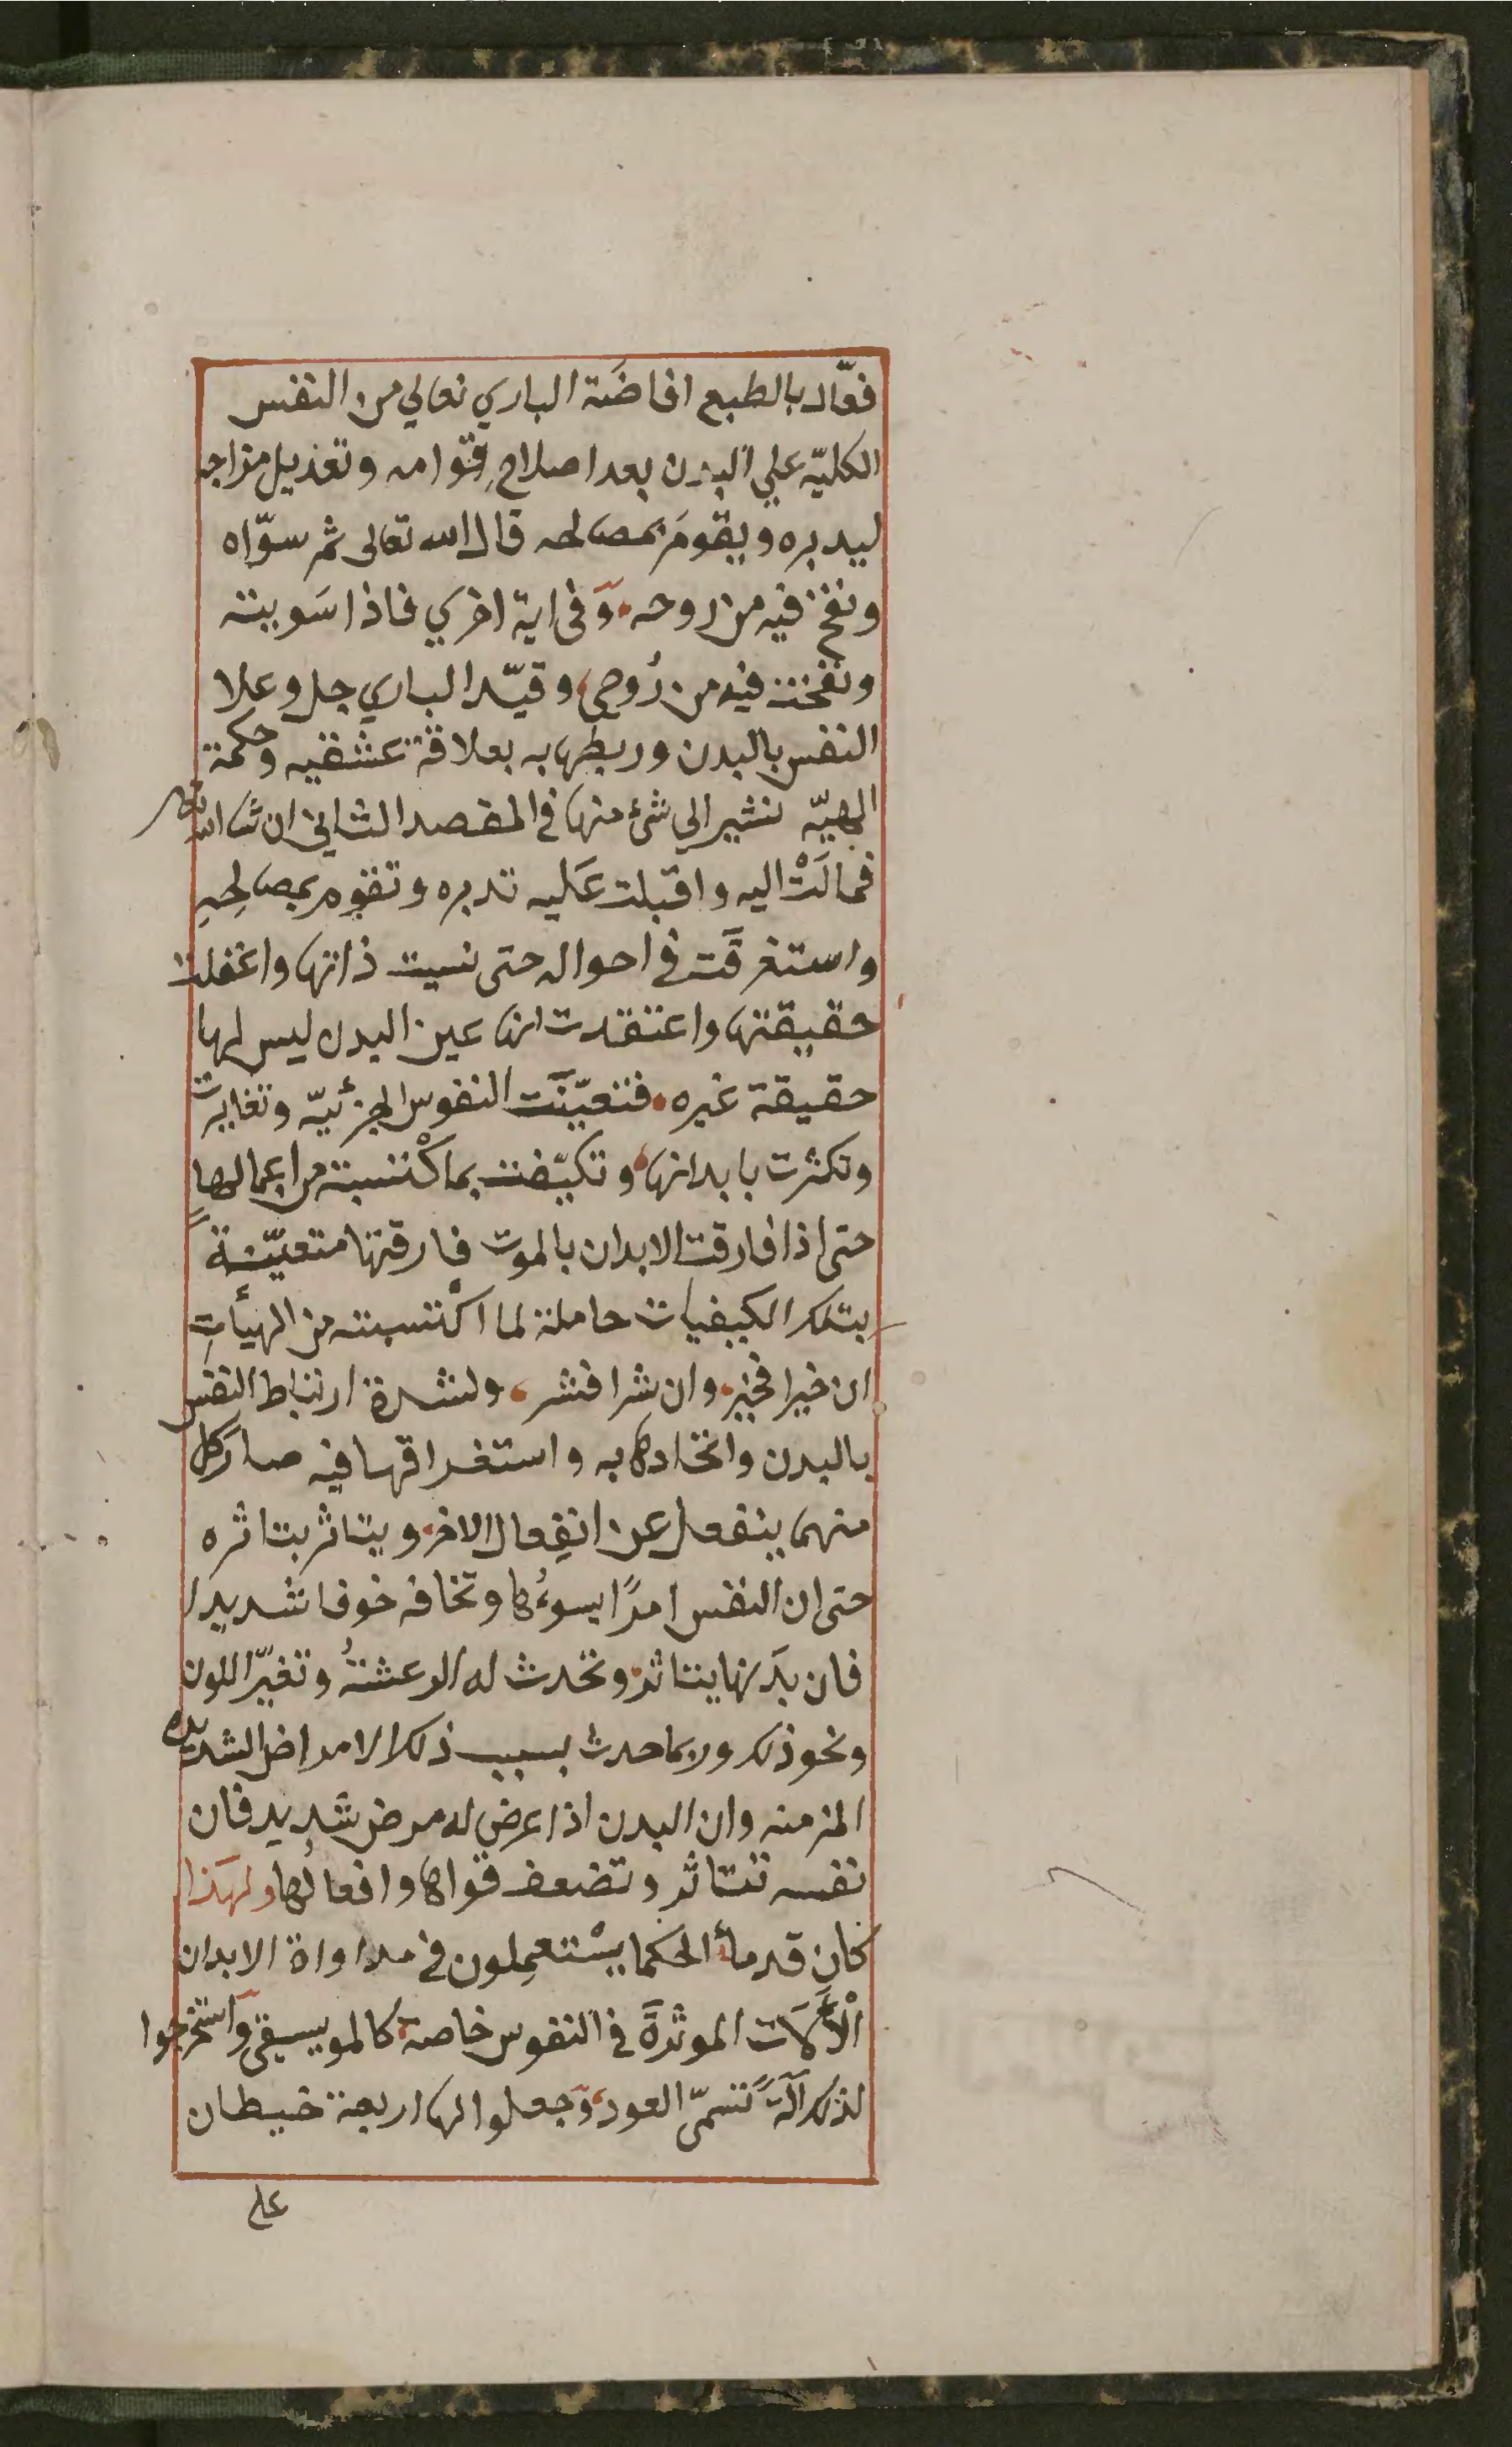 فعّال بالطبع افاضَة الباري تعالي من النفس
الكليّه علي البدن بعد اصلاحِ قوامه وتعديل مزاجه
ليدبره ويقومَ بمصالحه قال الله تعالى ثم سوّاه
ونفخ فيه من روحه وَفى اية اخري فاذا سَويته
ونفخت فيه من رُوحي وقيّد الباري جل وعلا
النفس بالبدن وربطها به بعلاقة عشقيه وحكمة
الهيّه نشير الي شئ منها في المقصد الثاني ان شا الله تعالى
فمالَتْ اليه واقبلت عَليه تدبره وتقوم بمصالحِهِ
واستغرقَت في احواله حتى نسيت ذاتها واغفلت
حقيقتها واعتقدت انها عين البدن ليس لها
حقيقة غيره فتعيّنَت النفوس الجزئيّه وتغايرت
وتكثرت بابدانها وتكيّفت بما كْتسبته من اعمالها
حتى اذا فارقت الابدان بالموت فارقتها متعيّنةً
بتلك الكيفيات حاملة لما اكْتسبته من الهيأتِ
ان خيرا فخير وان شرا فشر ولشدة ارتباط النفس
بالبدن واتحادها به واستغراقها فيه صار كل
منهما ينفعل عن انفِعال الاخر ويتاثر بتاثره
حتى ان النفس امرًا يسوءُها وتخافه خوفا شديدا
فان بدَنها يتاثر وتحدث له الرعشةُ وتغيّر اللون
ونحو ذلك وربما حدث بسبب ذلك الامراض الشديده
المزمنه وان البدن اذا عرض له مرض شديد فان
نفسه تتاثر وتضعف قواها وافعالُها ولهَذا
كان قدمأ الحكما يسْتعمِلون في مداواة الابدان
الْألَات الموثرَة في النفوس خاصة كالموسيقى وَاستخرجوا
لذلك آلَةً تسمّى العود وَجعلوا لها اربعة خيطان
على